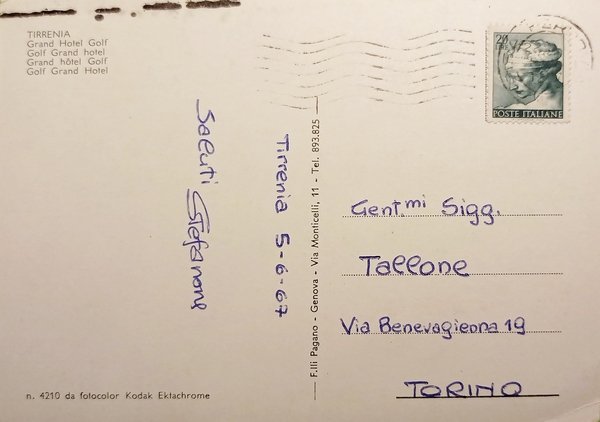 TIRRENIA
Grand Hotel Golf
Golf Grand hotel
Grand hôtel Golf
Golf Grand Hotel
Saluti Stefanone
Tirrenia 5-6-67
F.lli Pagano - Genova - Via Monticelli, 11 - Tel. 893.825
POSTE ITALIANE
Gent.mi Sigg.
Tallone
Via Benevagienna 19
TORINO
n. 4210 da fotocolor Kodak Ektachrome